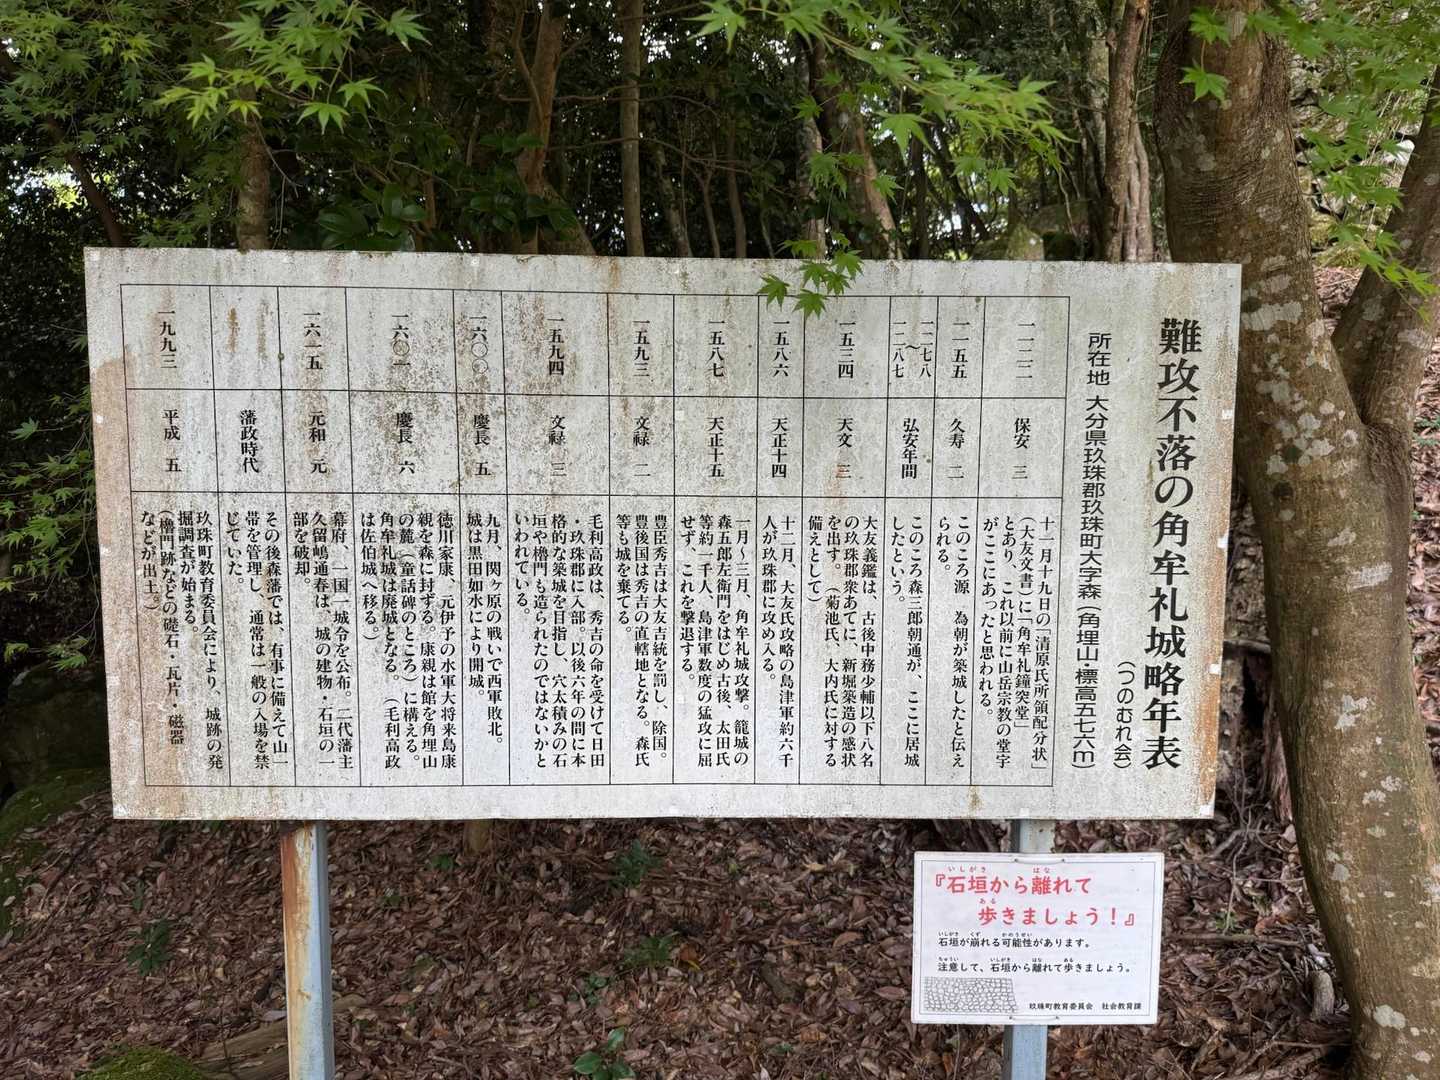 難攻不落の角牟礼城略年表
(つのむれ会)
所在地 大分県玖珠郡玖珠町大字森(角埋山・標高五七六m)
一一二二
保安 三
十一月十九日の「清原氏所領配分状」
(大友文書)に「角牟礼鐘突堂」
とあり、これ以前に山岳宗教の堂宇
がここにあったと思われる。
一一五五
久寿 二
このころ源 為朝が築城したと伝え
られる。
一二七八
〜
一二八七
弘安年間
このころ森三郎朝通が、ここに居城
したという。
一五三四
天文 三
大友義鑑は、古後中務少輔以下八名
の玖珠郡衆あてに、新堀築造の感状
を出す。(菊池氏、大内氏に対する
備えとして)
一五八六
天正十四
十二月、大友氏攻略の島津軍約六千
人が玖珠郡に攻め入る。
一五八七
天正十五
一月〜三月、角牟礼城攻撃。籠城の
森五郎左衛門をはじめ古後、太田氏
等約一千人、島津軍数度の猛攻に屈
せず、これを撃退する。
一五九三
文禄 二
豊臣秀吉は大友吉統を罰し、除国。
豊後国は秀吉の直轄地となる。森氏
等も城を棄てる。
一五九四
文禄 三
毛利高政は、秀吉の命を受けて日田
・玖珠郡に入部。以後六年の間に本
格的な築城を目指し、穴太積みの石
垣や櫓門も造られたのではないかと
いわれている。
一六〇〇
慶長 五
九月、関ヶ原の戦いで西軍敗北。
城は黒田如水により開城。
一六〇一
慶長 六
徳川家康、元伊予の水軍大将来島康
親を森に封ずる。康親は館を角埋山
の麓(童話碑のところ)に構える。
角牟礼城は廃城となる。(毛利高政
は佐伯城へ移る。)
一六一五
元和 元
幕府、一国一城令を公布。二代藩主
久留嶋通春は、城の建物・石垣の一
部を破却。
藩政時代
その後森藩では、有事に備えて山一
帯を管理し、通常は一般の入場を禁
じていた。
一九九三
平成 五
玖珠町教育委員会により、城跡の発
掘調査が始まる。
(櫓門跡などの礎石・瓦片・磁器
などが出土。)
『石垣から離れて
いしがき はな
歩きましょう!』
ある
石垣が崩れる可能性があります。
いしがき くず かのうせい
注意して、石垣から離れて歩きましょう。
ちゅうい いしがき はな ある
玖珠町教育委員会 社会教育課